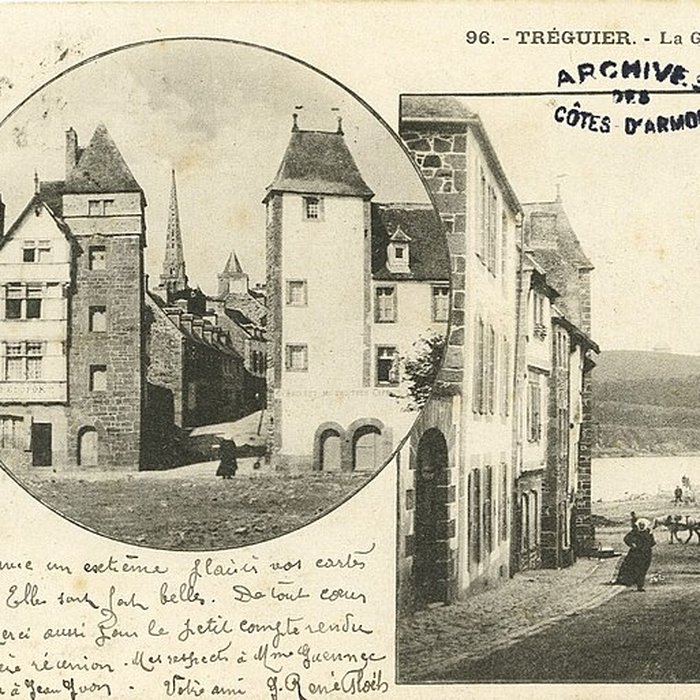 96. - TRÉGUIER. - La G
ARCHIVES
DES
CÔTES D'ARMO
un extrême plaisir vos cartes
Elles sont fort belles. De tout cœur
merci aussi pour le petit compte rendu
réunion. Mes respects à Mme
à Jean Yvon - Votre ami G. René